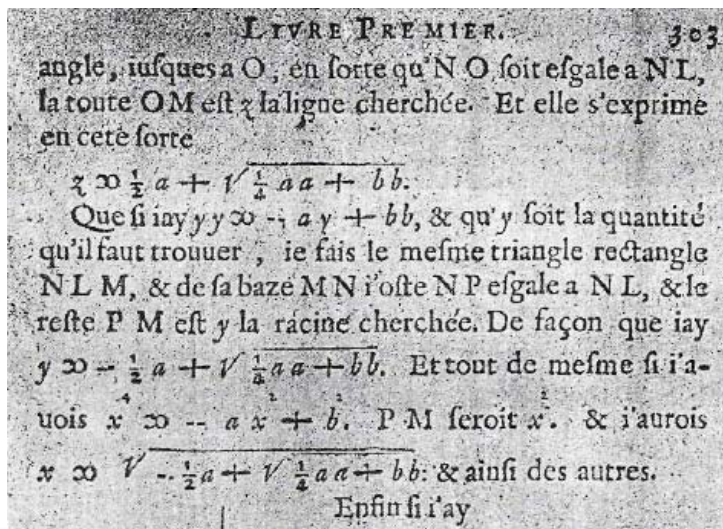 LIVRE PREMIER. 303
angle, iusques a O, en ſorte qu'N O ſoit eſgale a N L,
la toute OM eſt z la ligne cherchée. Et elle s'exprime
en cete ſorte
z ∞ ½ a + √ ¼ aa + bb.
Que ſi iay yy ∞ -- ay + bb, & qu'y ſoit la quantité
qu'il faut trouuer, ie fais le meſme triangle rectangle
N L M, & de ſa baze M N i'oſte N P eſgale a N L, & le
reſte P M eſt y la racine cherchée. De façon que iay
y ∞ -- ½ a + √ ¼ aa + bb. Et tout de meſme ſi i'a-
uois x⁴ ∞ -- a x² + b². P M ſeroit x². & i'aurois
x ∞ √ -- ½ a + √ ¼ aa + bb: & ainſi des autres.
Enfin ſi i'ay